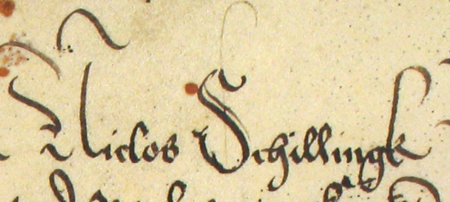 Niclos Schillingk